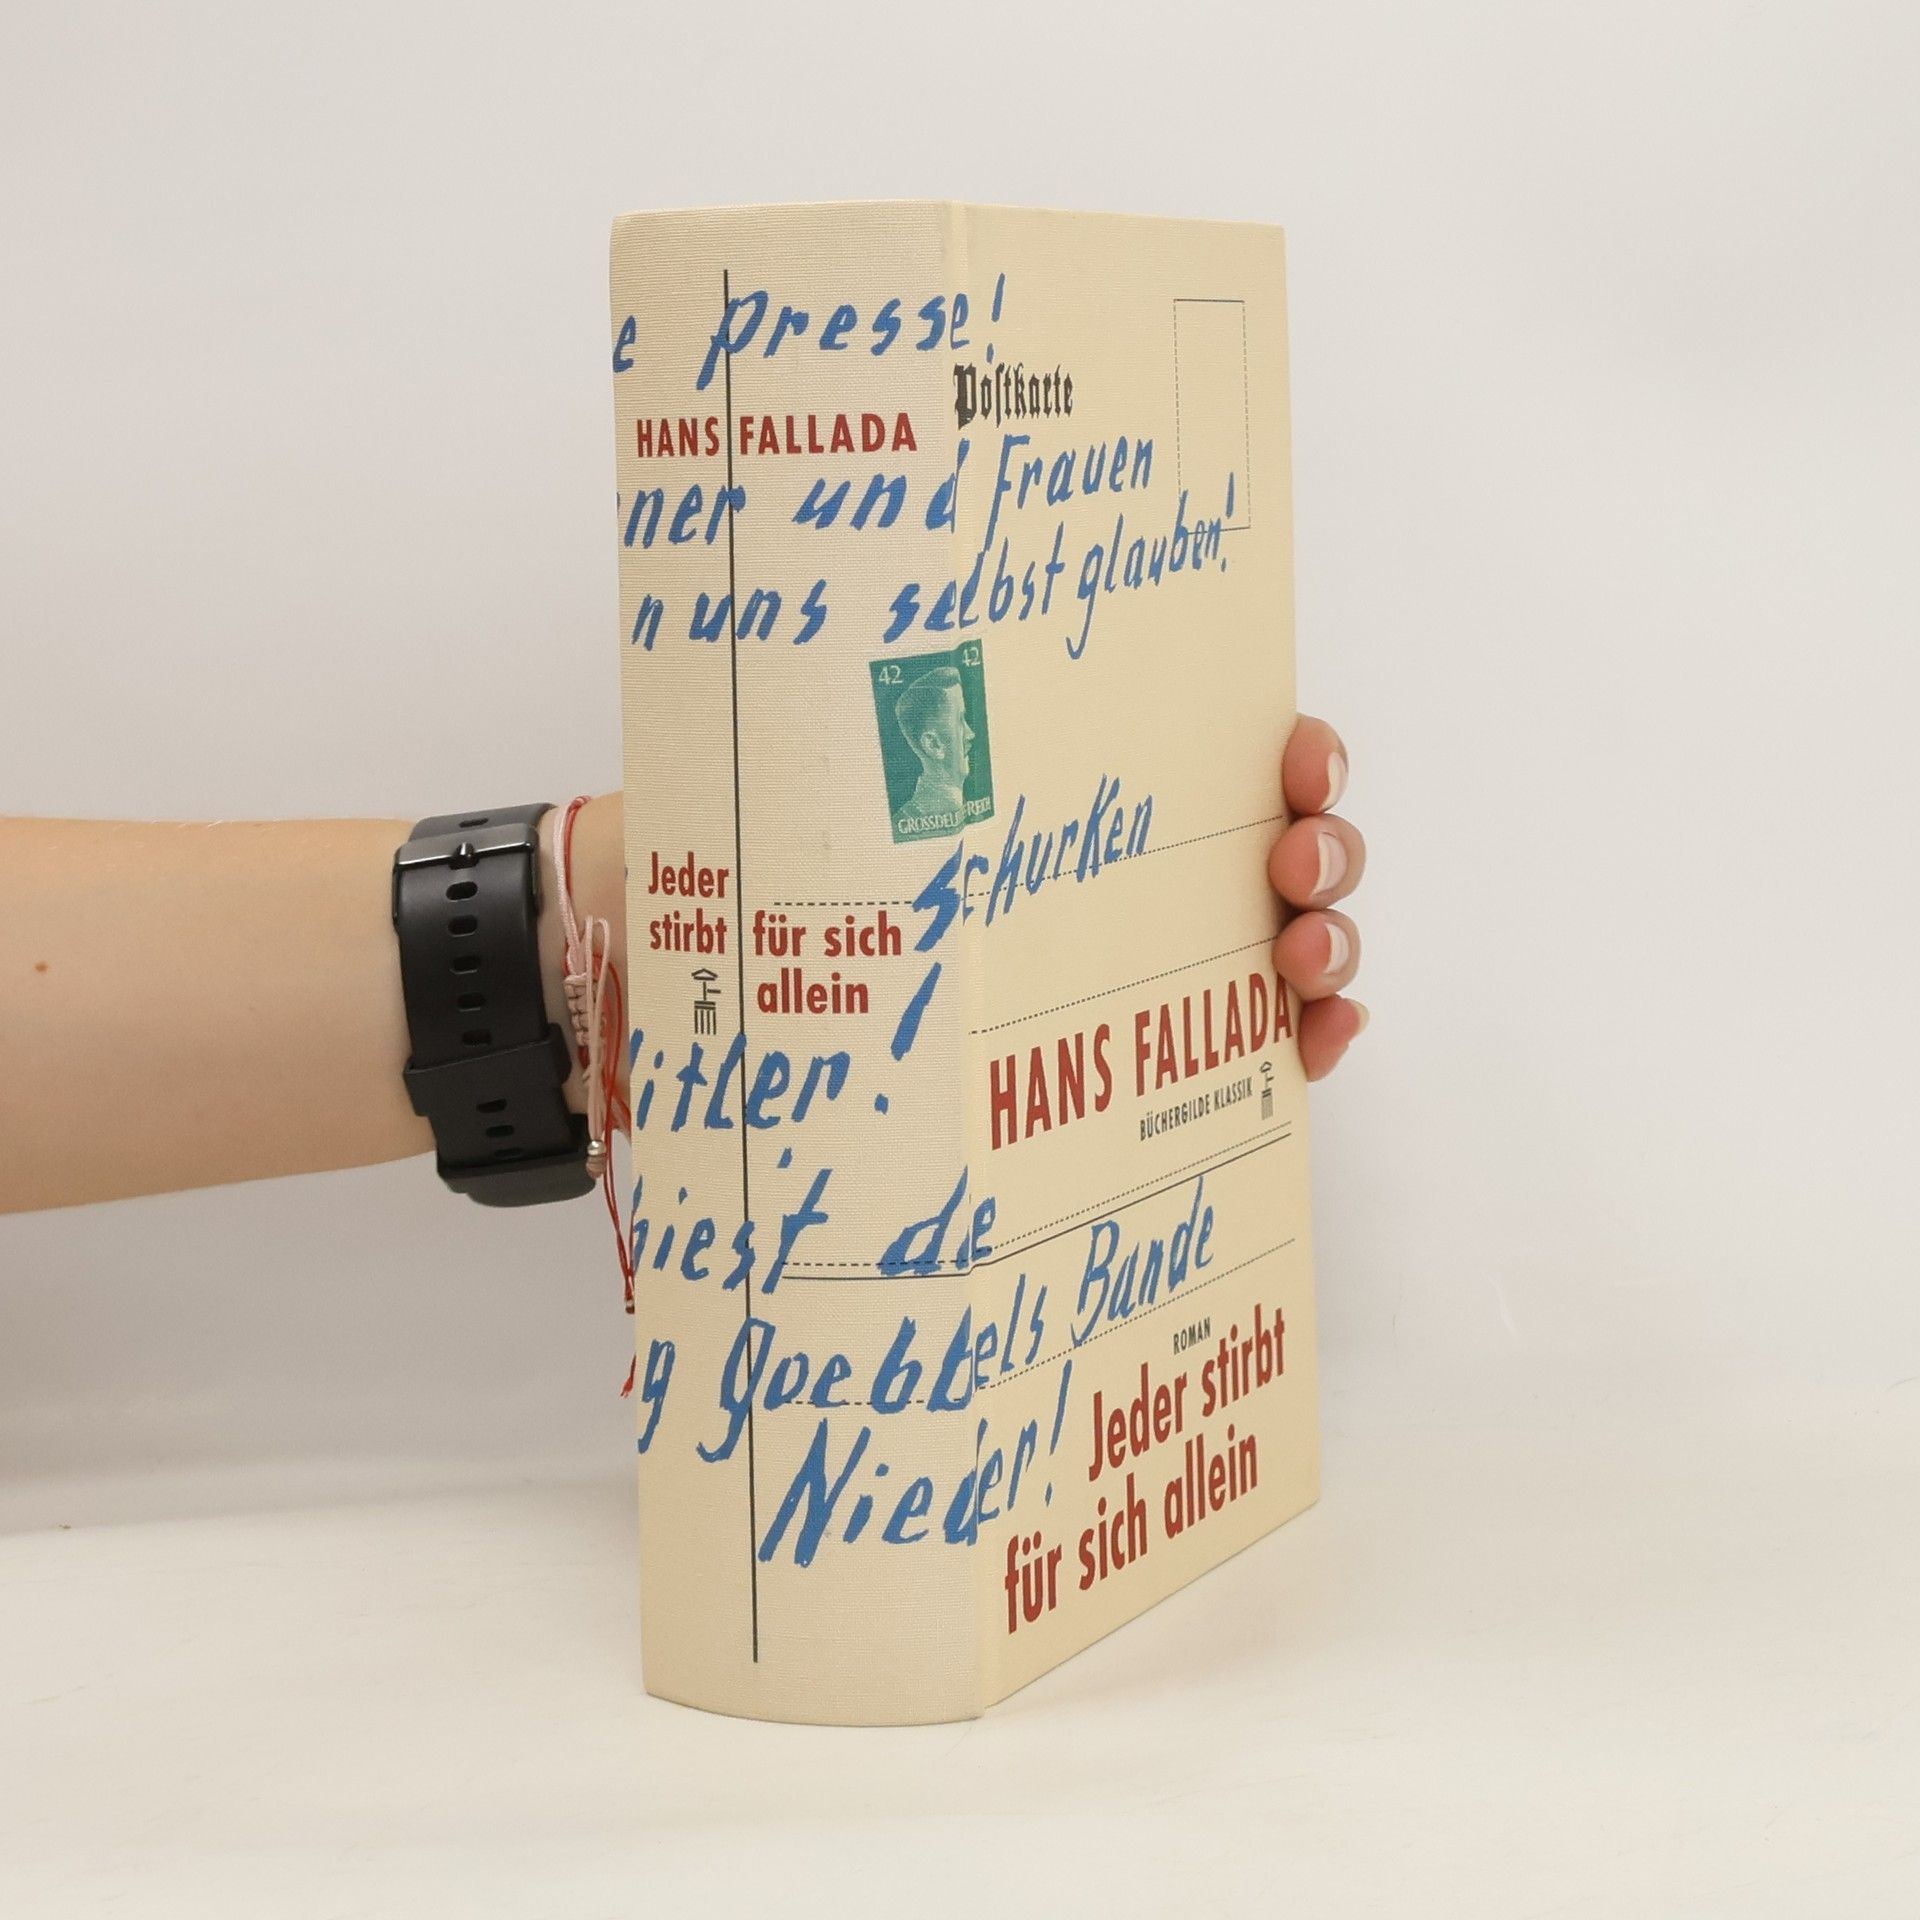 e Presse!
HANS FALLADA
Postkarte
ner und Frauen
n uns selbst glauben!
42 42
GROSSDEU REICH
Schurken
Jeder
stirbt für sich
allein
HANS FALLADA
BÜCHERGILDE KLASSIK
itler!
iest de
g Goebbels Bande
Nieder!
ROMAN
Jeder stirbt
für sich allein